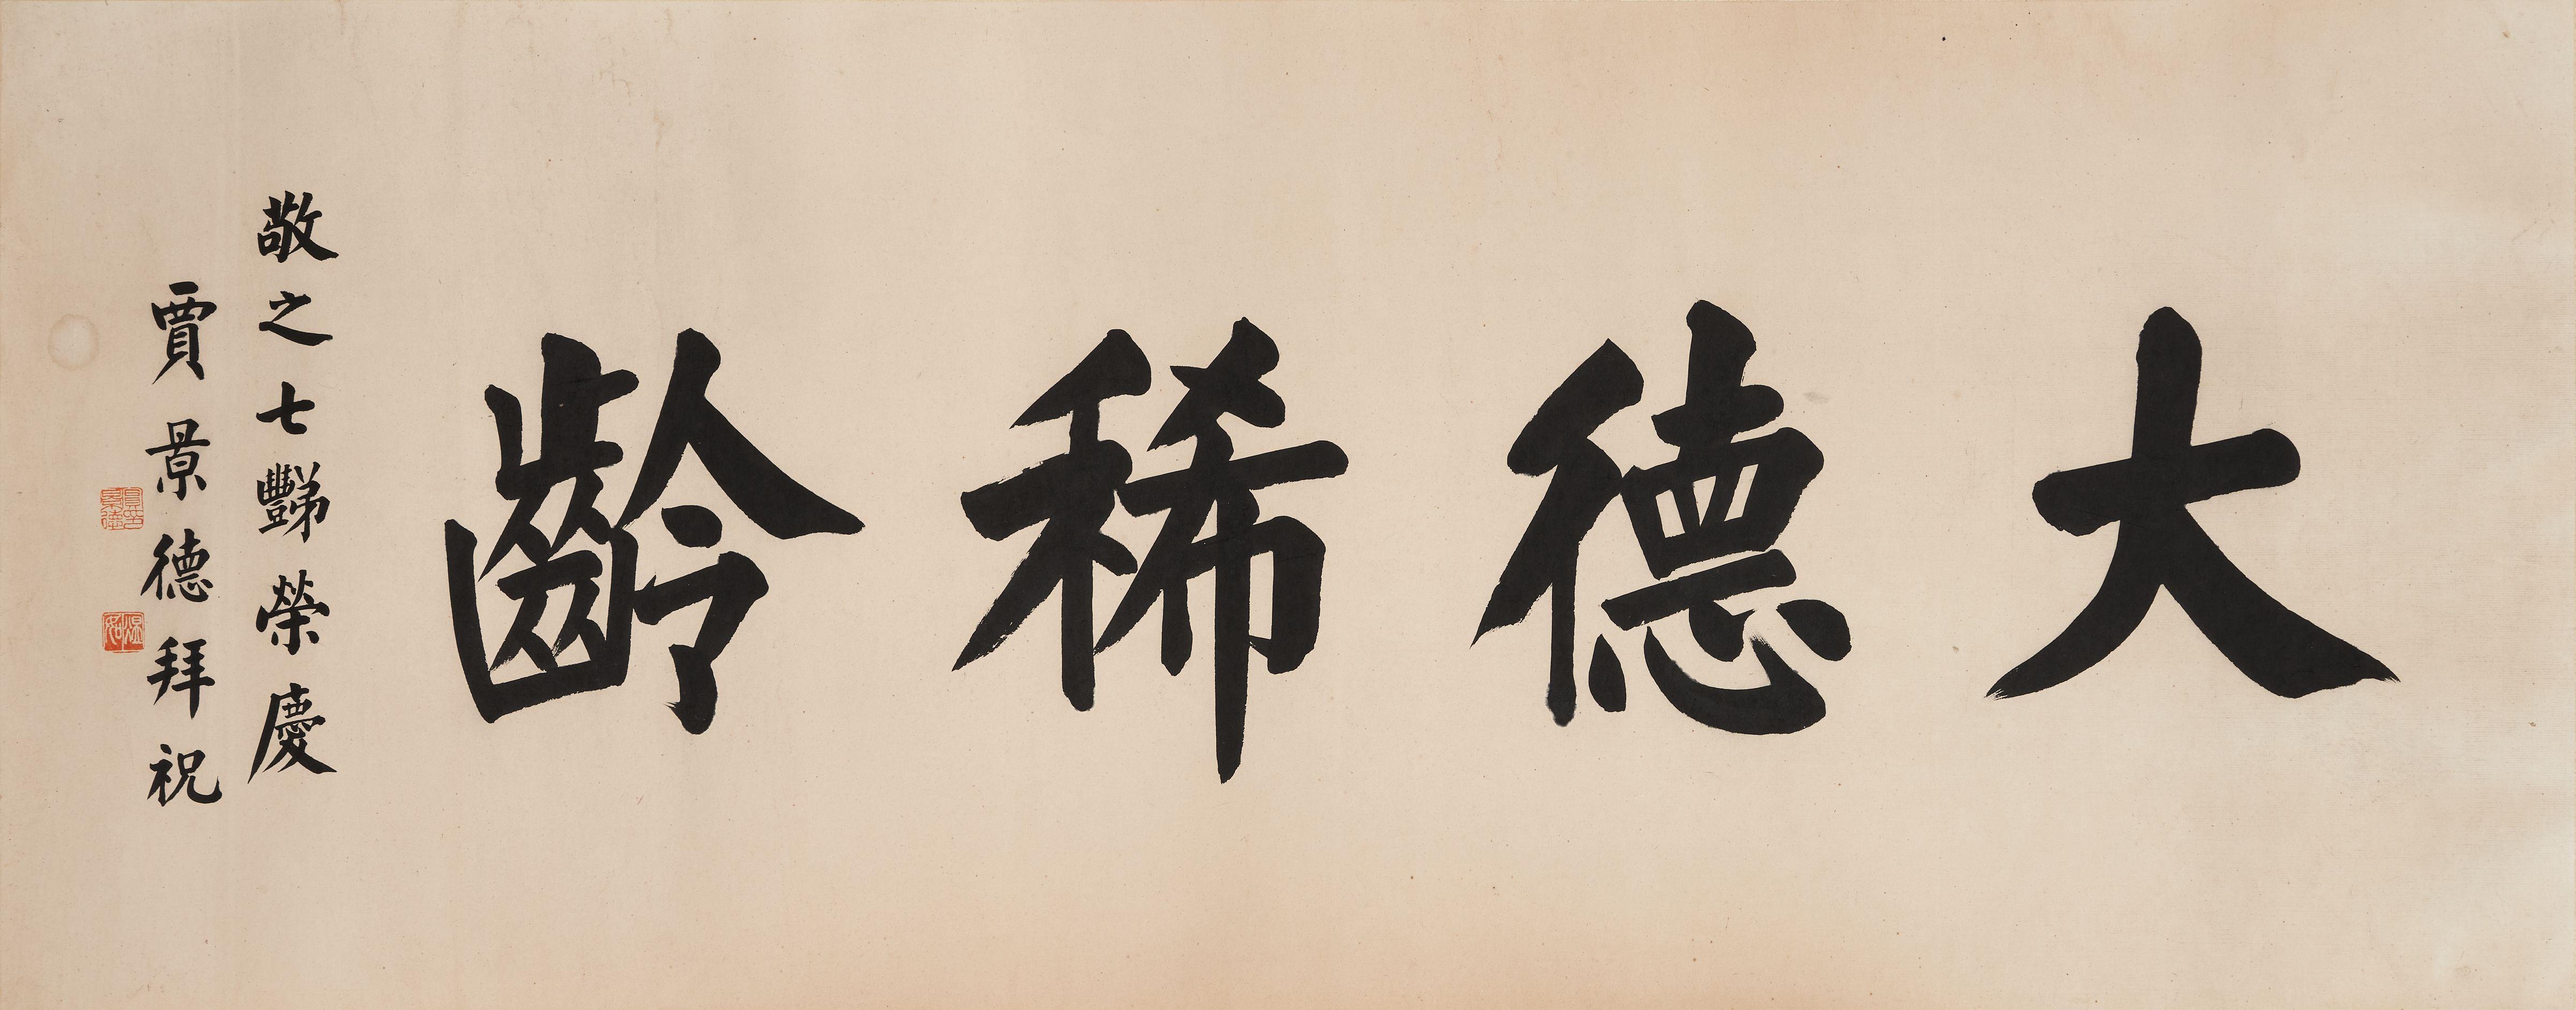 大德稀齡
敬之七豑榮慶
賈景德拜祝